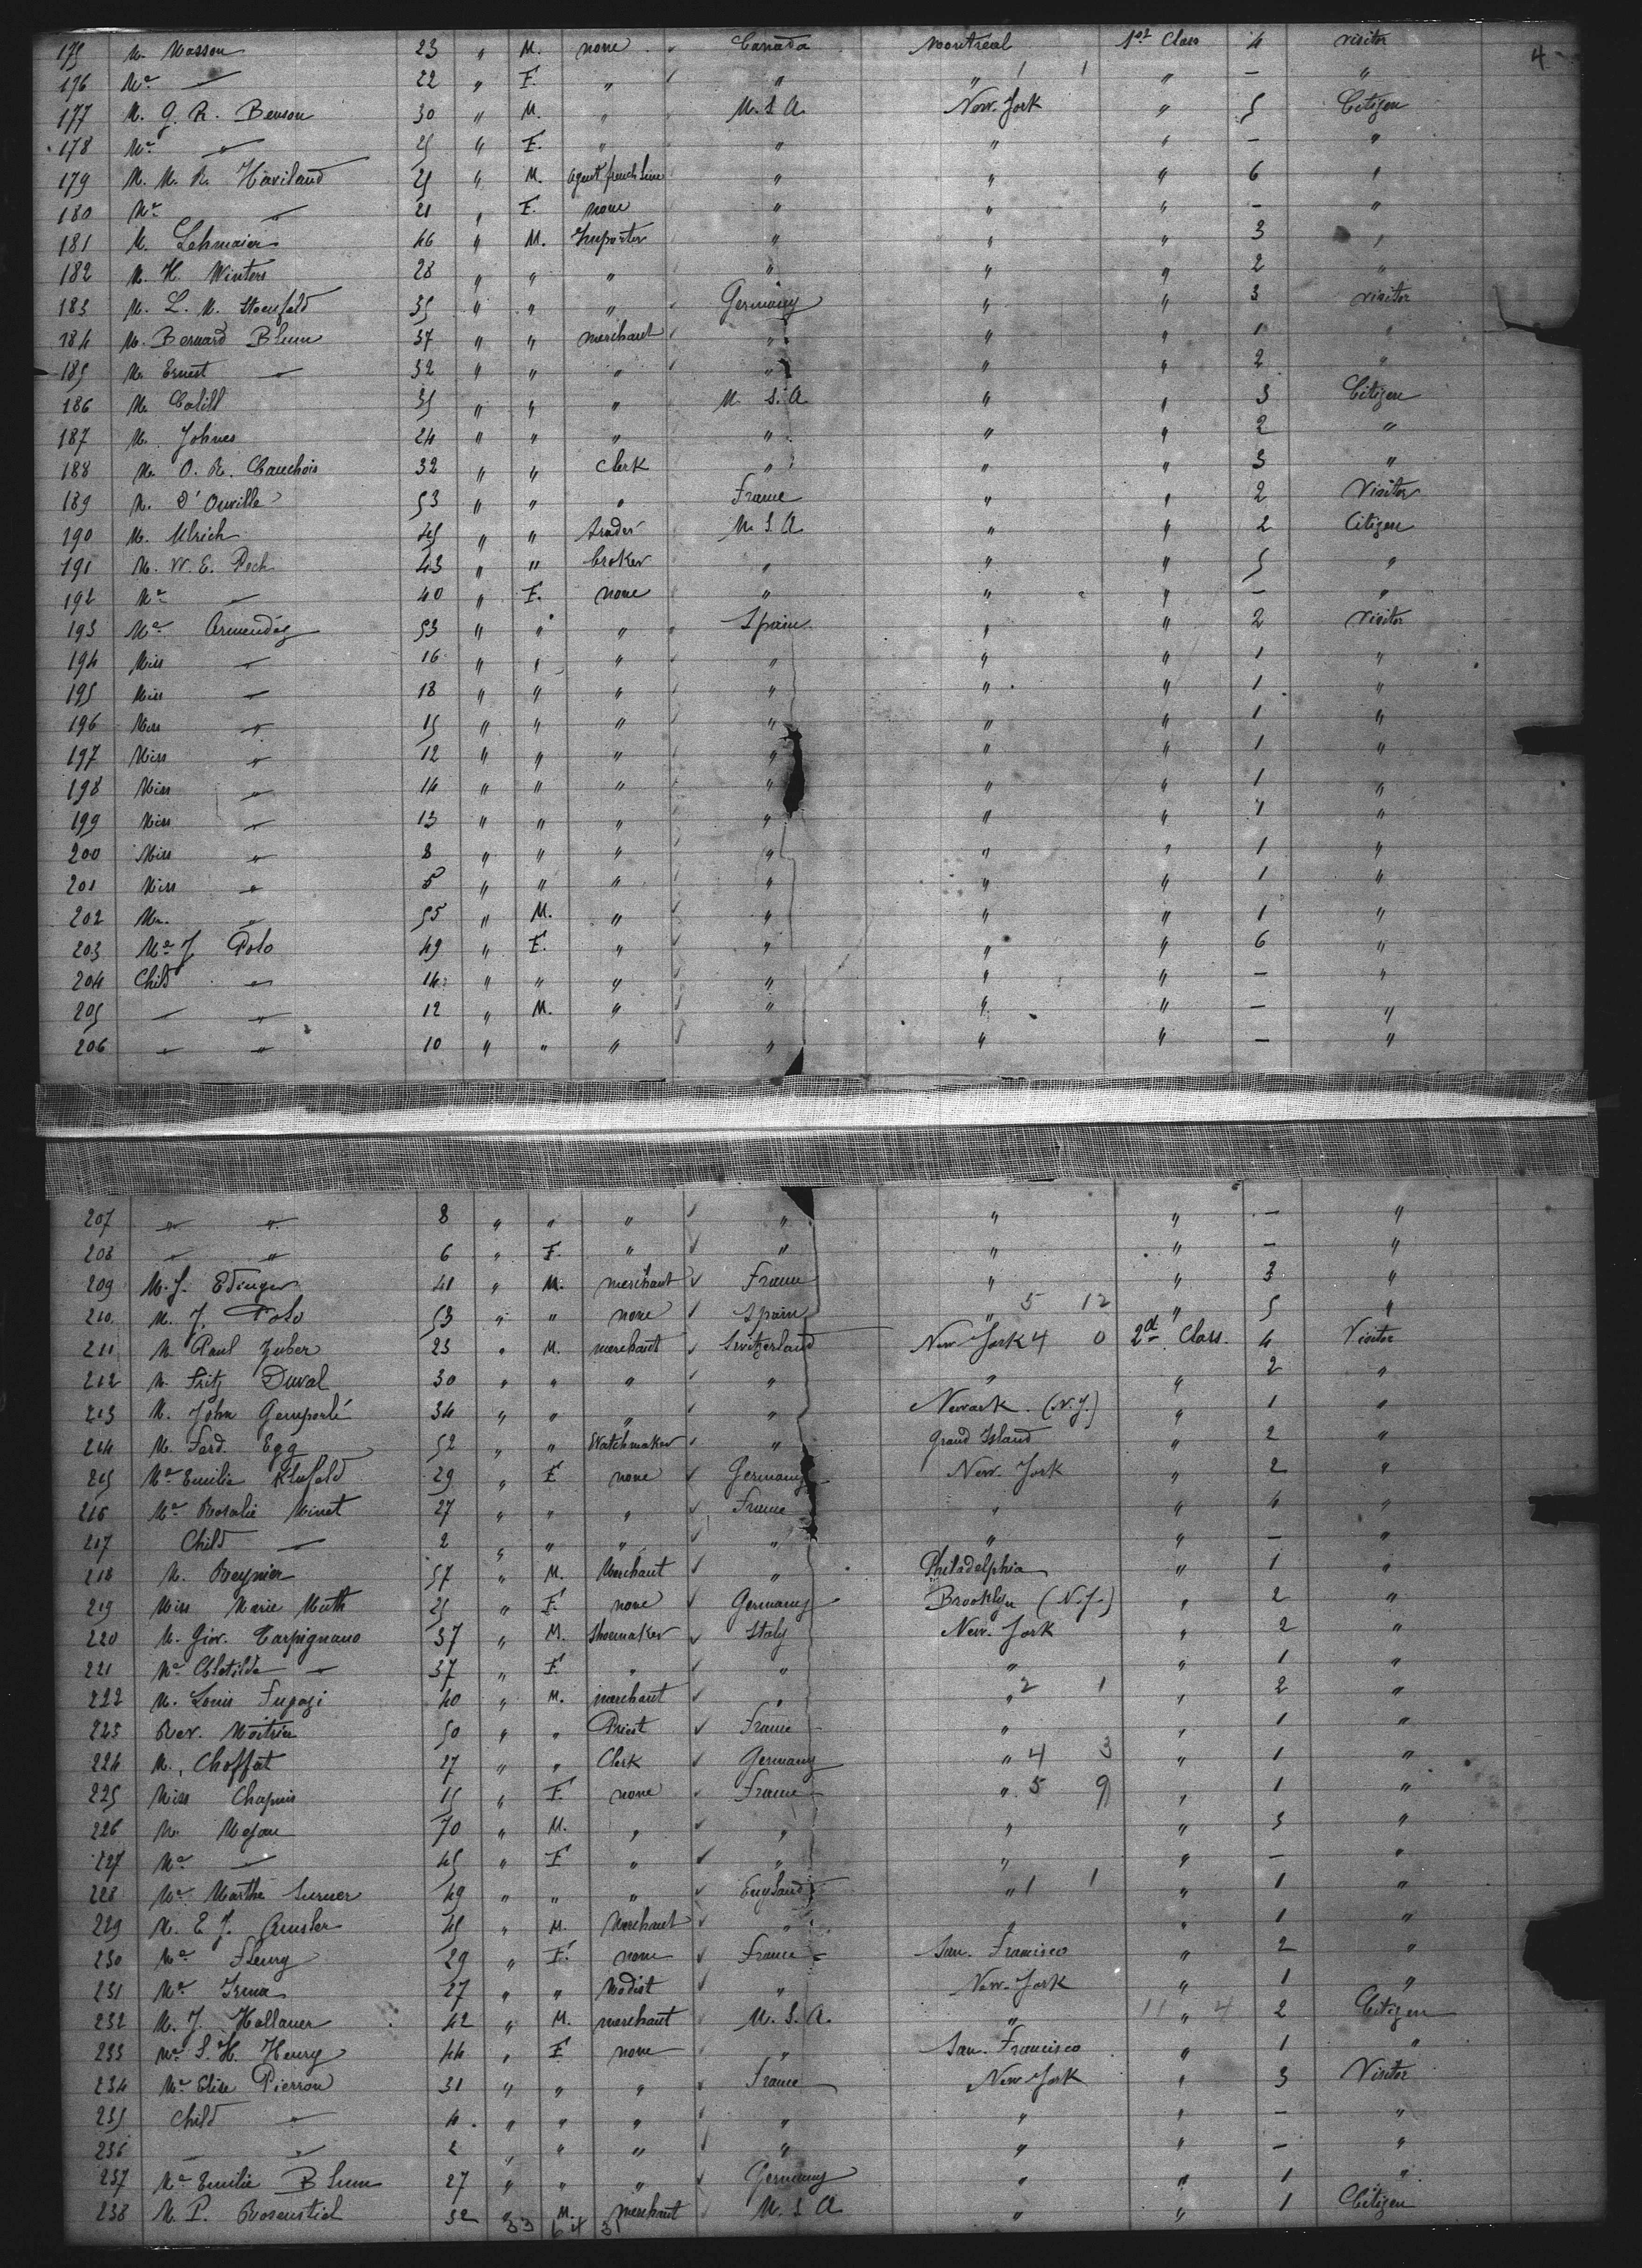 4
175 M. Masson 23 " M. none Canada Montréal 1st Class 4 visitor
176 Me " 22 " F. " " " 1 1 " — "
177 M. G. R. Benson 30 " M. " U. S. A. New. York " 5 Citizen
178 Me " 25 " F. " " " " — "
179 M. M. R. Haviland 25 " M. agent french Line " " " 6 "
180 Me " 21 " F. none " " " — "
181 M. Lehmaier 46 " M. Importer " " " 3 "
182 M. H. Winters 28 " " " " " " 2 "
183 M. L. M. 35 " " " Germany " " 3 visitor
184 M. Bernard Blum 37 " " merchant " " " 1 "
185 M. Ernest " 32 " " " " " " 2 "
186 M. 35 " " " U. S. A. " " 3 Citizen
187 M. Johnes 24 " " " " " " 2 "
188 M. O. R. Cauchois 32 " " Clerk " " " 3 "
189 M. D'Orville 53 " " " France " " 2 Visitor
190 M. Ulrich 45 " " trader U. S. A. " " 2 Citizen
191 M. W. E. Peck 43 " " broker " " " 5 "
192 Me " 40 " F. none " " " — "
193 Me Armendez 53 " " " Spain " " 2 Visitor
194 Miss " 16 " " " " " " 1 "
195 Miss " 18 " " " " " " 1 "
196 Miss " 15 " " " " " " 1 "
197 Miss " 12 " " " " " " 1 "
198 Miss " 14 " " " " " " 1 "
199 Miss " 13 " " " " " " 1 "
200 Miss " 8 " " " " " " 1 "
201 Miss " 5 " " " " " " 1 "
202 M. " 55 " M. " " " " 1 "
203 Me J. Polo 49 " F. " " " " 6 "
204 Child " 14 " " " " " " — "
205 " " 12 " M. " " " " — "
206 " " 10 " " " " " " — "
207 " " 8 " " " " " " — "
208 " " 6 " F. " " " " — "
209 M. J. Edinger 41 " M. merchant France " " 3 "
210 M. J. Polo 53 " " none Spain " 5 12 " 5 "
211 M. Paul Zuber 23 " M. merchant Switzerland New York 4 0 2d Class. 4 Visitor
212 M. Fritz Duval 30 " " " " " " 2 "
213 M. John Gemperlé 34 " " " " Newark. (N. J.) " 1 "
214 M. Ferd. Egg 52 " " Watchmaker " Grand Island " 2 "
215 Me Emilie 29 " F none Germany New. York " 2 "
216 Me Rosalie Minet 27 " " " France " " 4 "
217 Child " 2 " " " " " " — "
218 M. Reynier 57 " M. Merchant " Philadelphia " 1 "
219 Miss Marie Muth 25 " F. none Germany Brooklyn (N. J.) " 2 "
220 M. Giov. Carpignano 37 " M. Shoemaker Italy New. York " 2 "
221 Me Clotilde " 37 " F. " " " " 1 "
222 M. Louis Fugazi 40 " M. merchant " " 2 1 " 2 "
223 Rev. Moitrier 50 " " Priest France " " 1 "
224 M. Choffat 27 " " Clerk Germany " 4 3 " 1 "
225 Miss Chapuis 15 " F. none France " 5 9 " 1 "
226 M. Mejan 70 " M. " " " " 3 "
227 Me " 45 " F " " " " — "
228 Me Marthe Surner 49 " " " England " 1 1 " 1 "
229 M. E. J. Amsler 45 " M. Merchant " " " 1 "
230 Me Fleury 29 " F. none France San. Francisco " 2 "
231 Me Irma 27 " " Modist " New. York " 1 "
232 M. J. Hallauer 42 " M. merchant U. S. A. " 11 " 4 2 Citizen
233 Me S. H. Henry 44 " F none " San. Francisco " 1 "
234 Me Elise Pierron 31 " " " France New York " 3 Visitor
235 Child " 4 " " " " " " — "
236 " " 2 " " " " " " — "
237 Me Emilie Blum 27 " " " Germany " " 1 "
238 M. P. Rosenstiel 32 " M. merchant U. S. A " " 1 Citizen
33 64 31